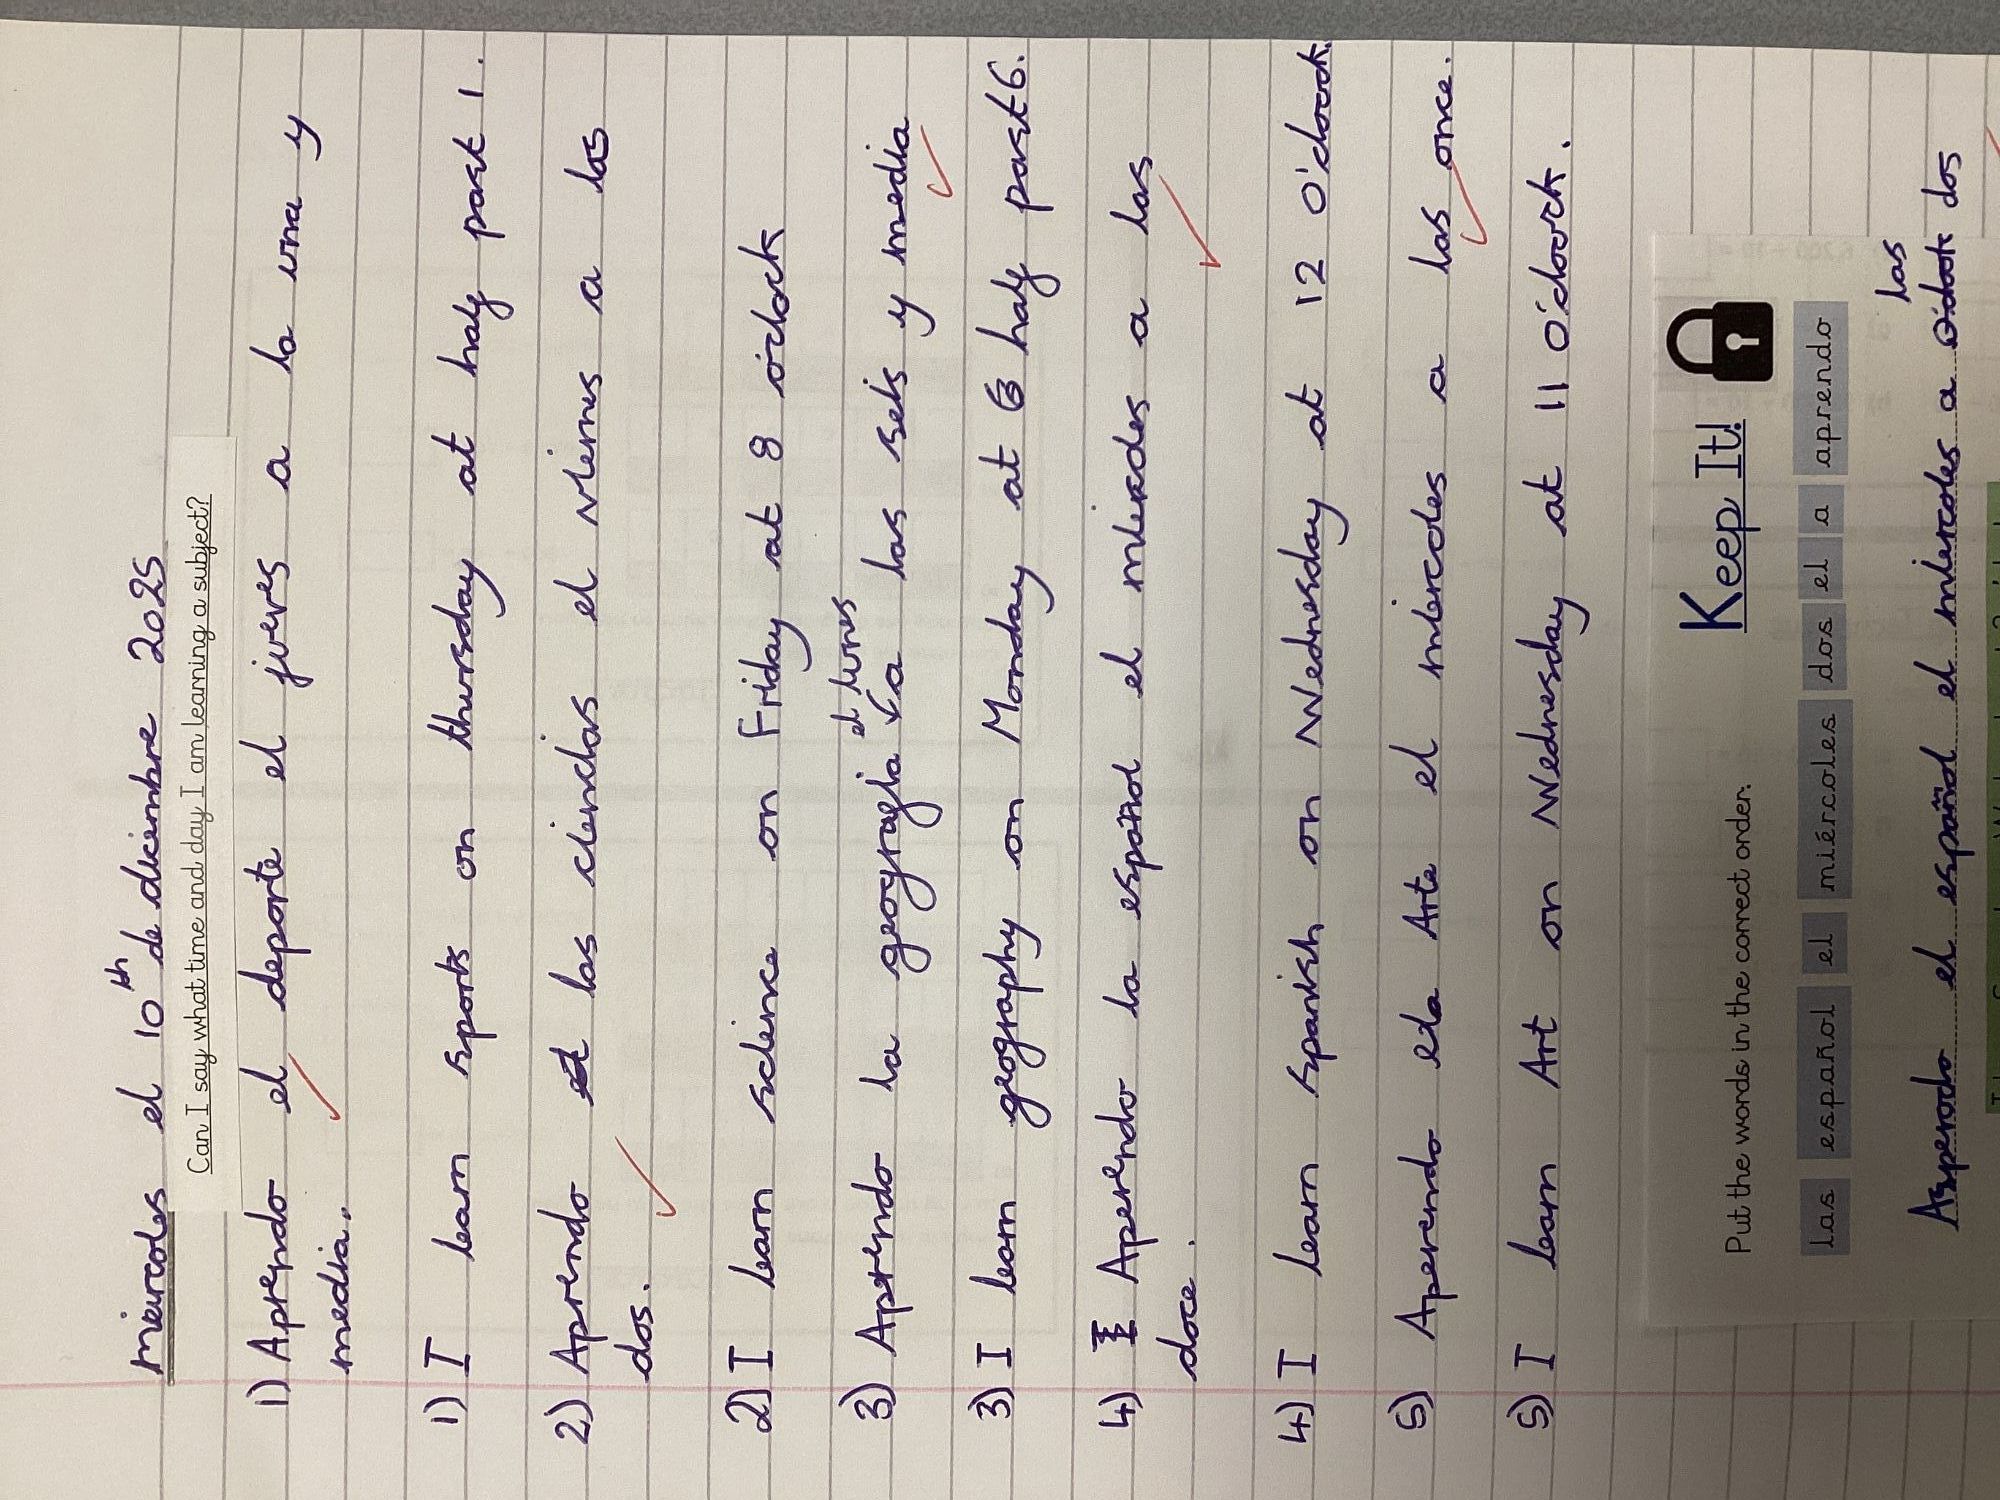 miercoles el 10th de diciembre 2025
Can I say what time and day I am learning a subject?
1) Aprendo el deporte el jueves a la una y
media.
1) I learn sports on thursday at half past 1.
2) Aprendo las ciencias el viernes a las
dos.
2) I learn science on Friday at 8 o'clock
el lunes
3) Aprendo la geografia a las seis y media
3) I learn geography on Monday at 6 half past 6.
4) Aperendo la español el miercdes a las
doce.
4) I learn spanish on Wednesday at 12 O'clock.
5) Aperendo ela Arte el miercoles a las once.
5) I learn Art on Wednesday at 11 O'clock.
Keep It!
Put the words in the correct order.
las español el miércoles dos el a aprendo
las
Asperodo el español el miercoles a o'clock dos